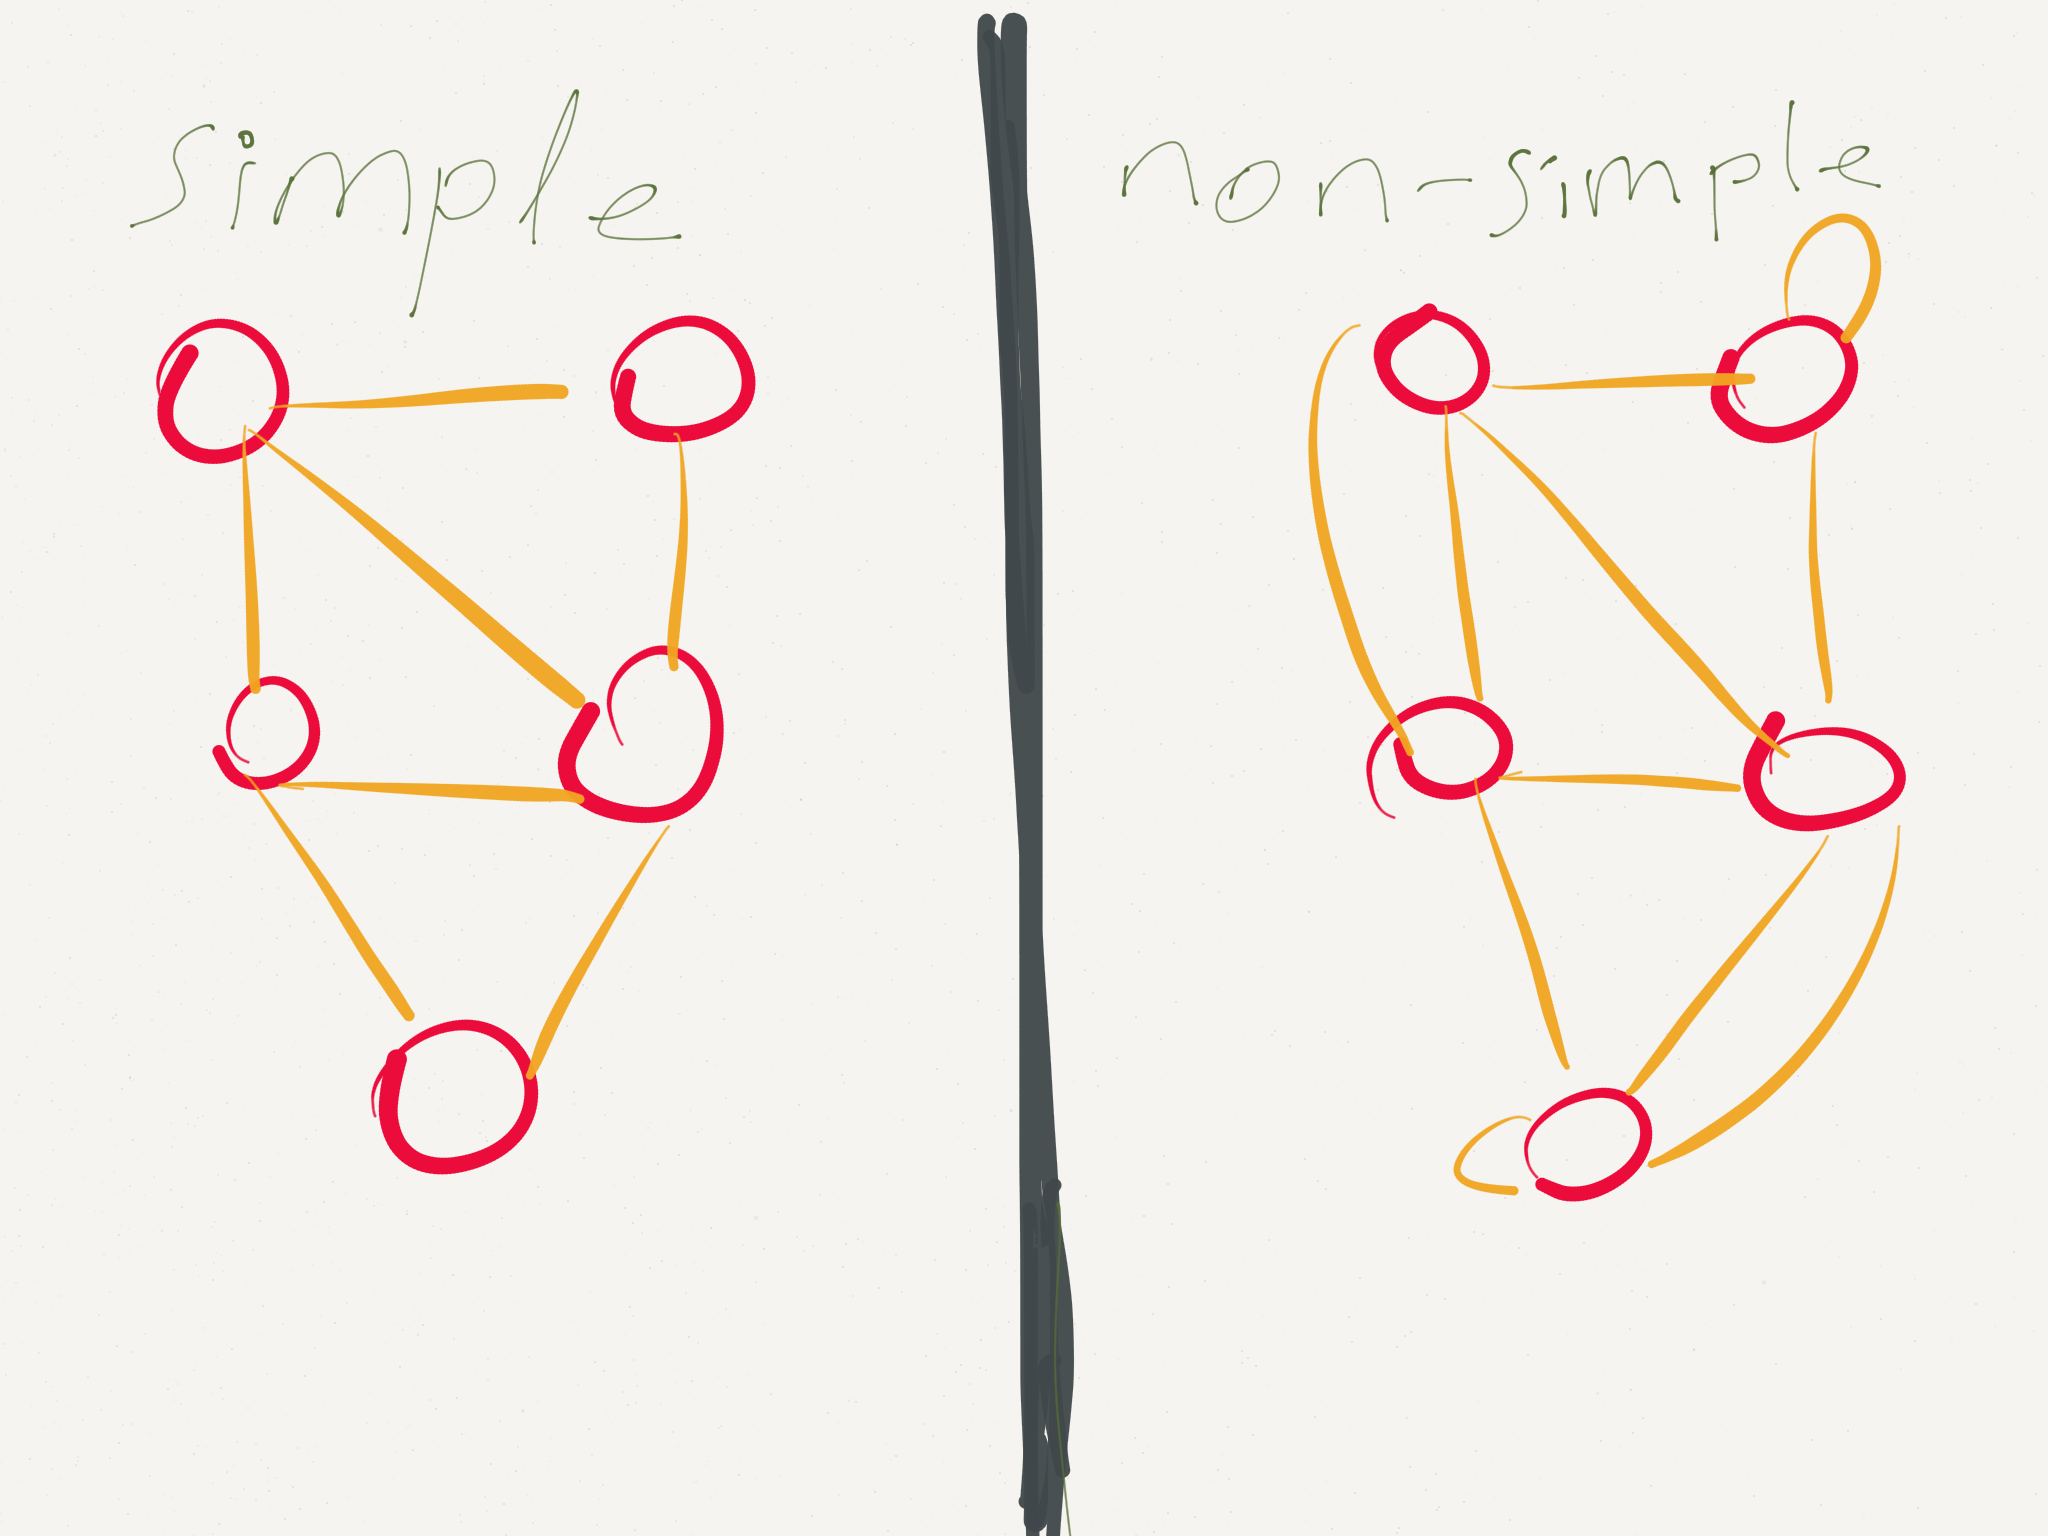 simple
non-simple